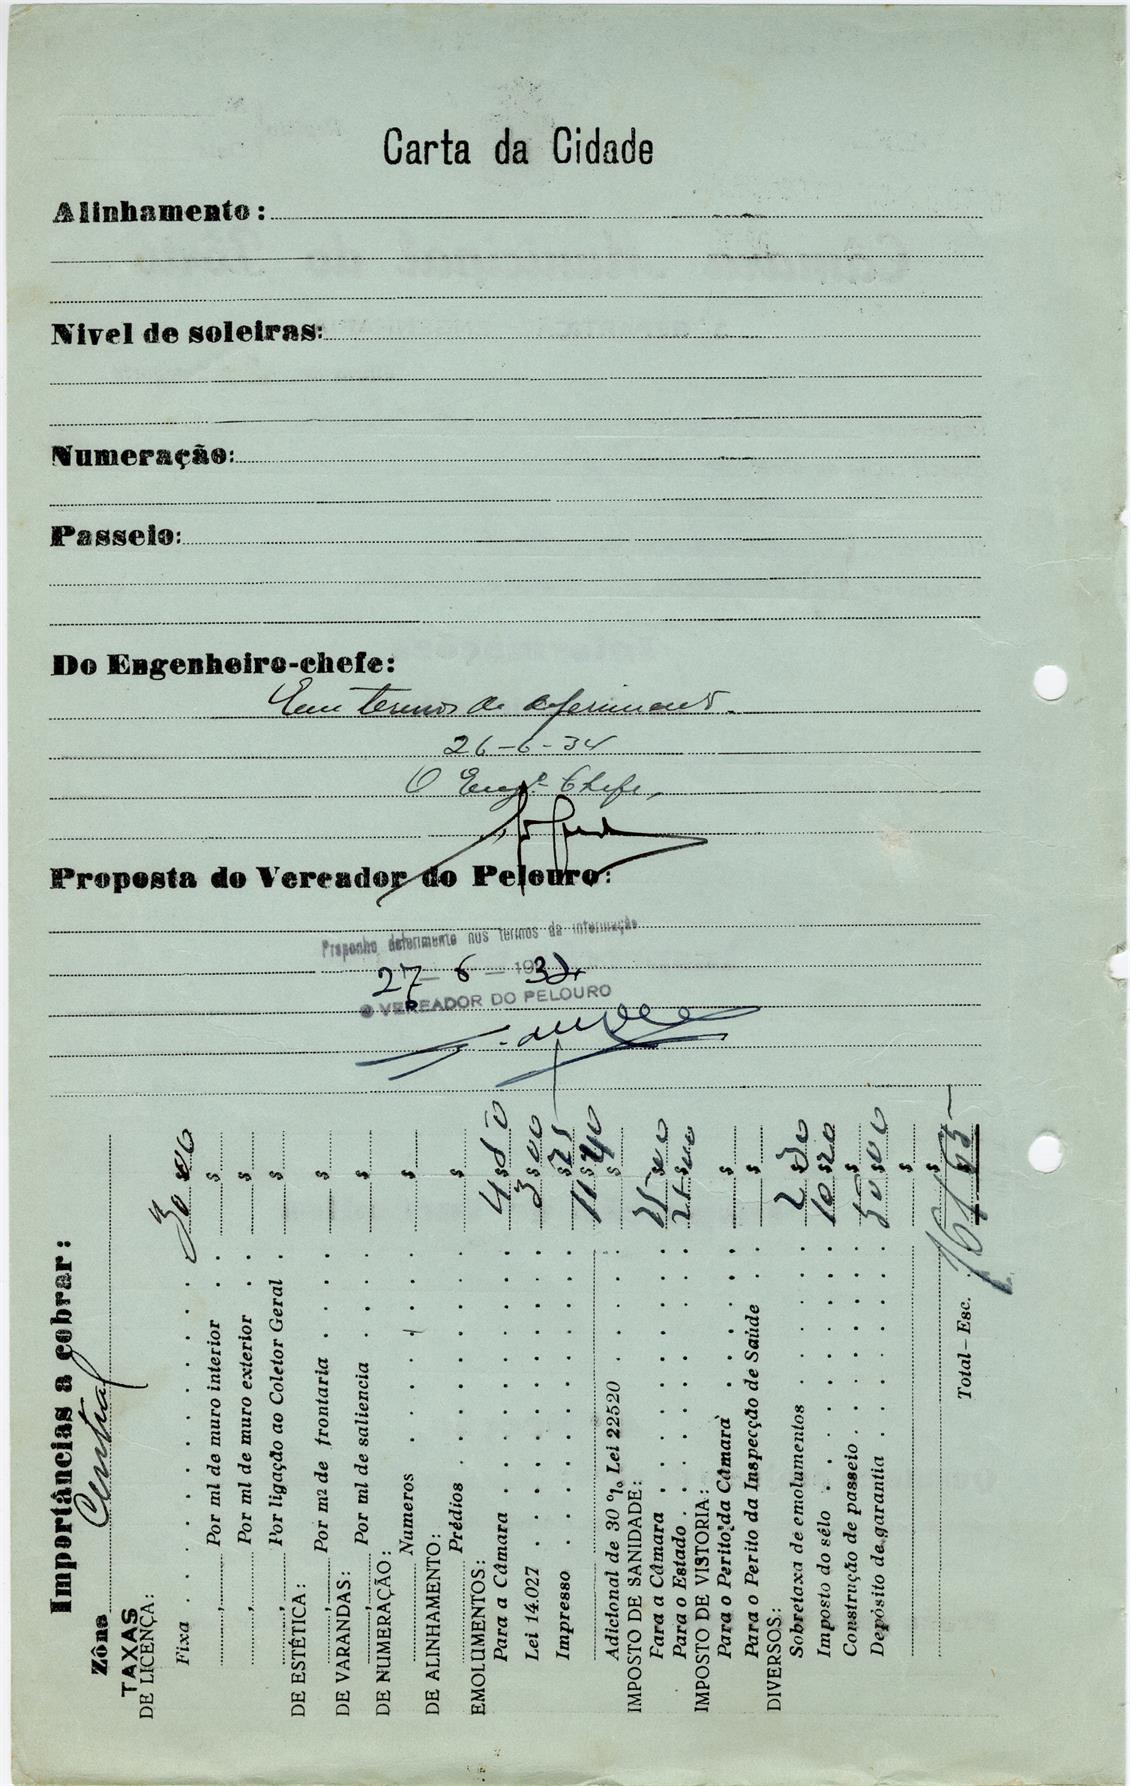 Carta da Cidade
Alinhamento:
Nivel de soleiras:
Numeração:
Passeio:
Do Engenheiro-chefe:
Em termos de deferimento.
26-6-34
O Engº Chefe,
Proposta do Vereador do Pelouro:
Proponho deferimento nos termos da informação
27 - 6 - 1934
O VEREADOR DO PELOURO
Importâncias a cobrar:
Zôna Central
TAXAS
DE LICENÇA:
Fixa 30$00
Por ml de muro interior $
Por ml de muro exterior $
Por ligação ao Coletor Geral $
DE ESTÉTICA:
Por m2 de frontaria $
DE VARANDAS:
Por ml de saliencia $
DE NUMERAÇÃO:
Numeros $
DE ALINHAMENTO:
Prédios $
EMOLUMENTOS:
Para a Câmara 4$50
Lei 14.027 3$00
Impresso $25
11$40
Adicional de 30 % Lei 22520 $
IMPOSTO DE SANIDADE:
Para a Câmara 25$00
Para o Estado 25$00
IMPOSTO DE VISTORIA:
Para o Perito da Câmara $
Para o Perito da Inspecção de Saúde $
DIVERSOS:
Sobretaxa de emolumentos
Imposto do sêlo 10$20
Construção de passeio $
Depósito de garantia 50$00
$
Total - Esc.